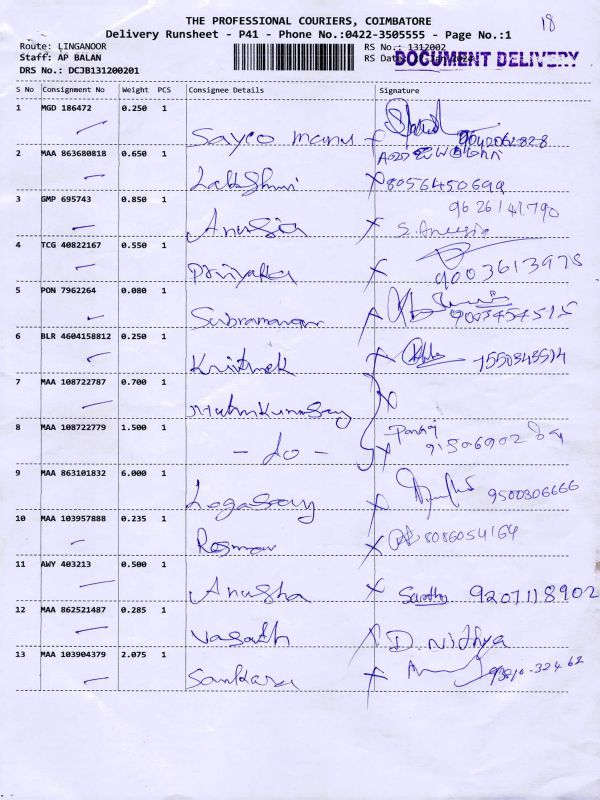 18
THE PROFESSIONAL COURIERS, COIMBATORE
Delivery Runsheet - P41 - Phone No.:0422-3505555 - Page No.:1
Route: LINGANOOR RS No.: 1312002
Staff: AP BALAN RS Dat DOCUMENT DELIVERY
DRS No.: DCJB131200201
S No Consignment No Weight PCS Consignee Details Signature
1 MGD 186472 0.250 1
9042062828
2 MAA 863680818 0.650 1
Lakshmi 8056450699
3 GMP 695743 0.850 1 9626141790
Anusia S. Anusia
4 TCG 40822167 0.550 1
Priyanka 9003613975
5 PON 7962264 0.080 1
Subramanian 9003454515
6 BLR 4604158812 0.250 1
7550343514
7 MAA 108722787 0.700 1
Muthukumarasamy
8 MAA 108722779 1.500 1
- do -
9 MAA 863101832 6.000 1
Logasamy 9500306666
10 MAA 103957888 0.235 1
8086054164
11 AWY 403213 0.500 1
Anusha 9207118902
12 MAA 862521487 0.285 1
Vasanth D. Nidhya
13 MAA 103904379 2.075 1
Sankara